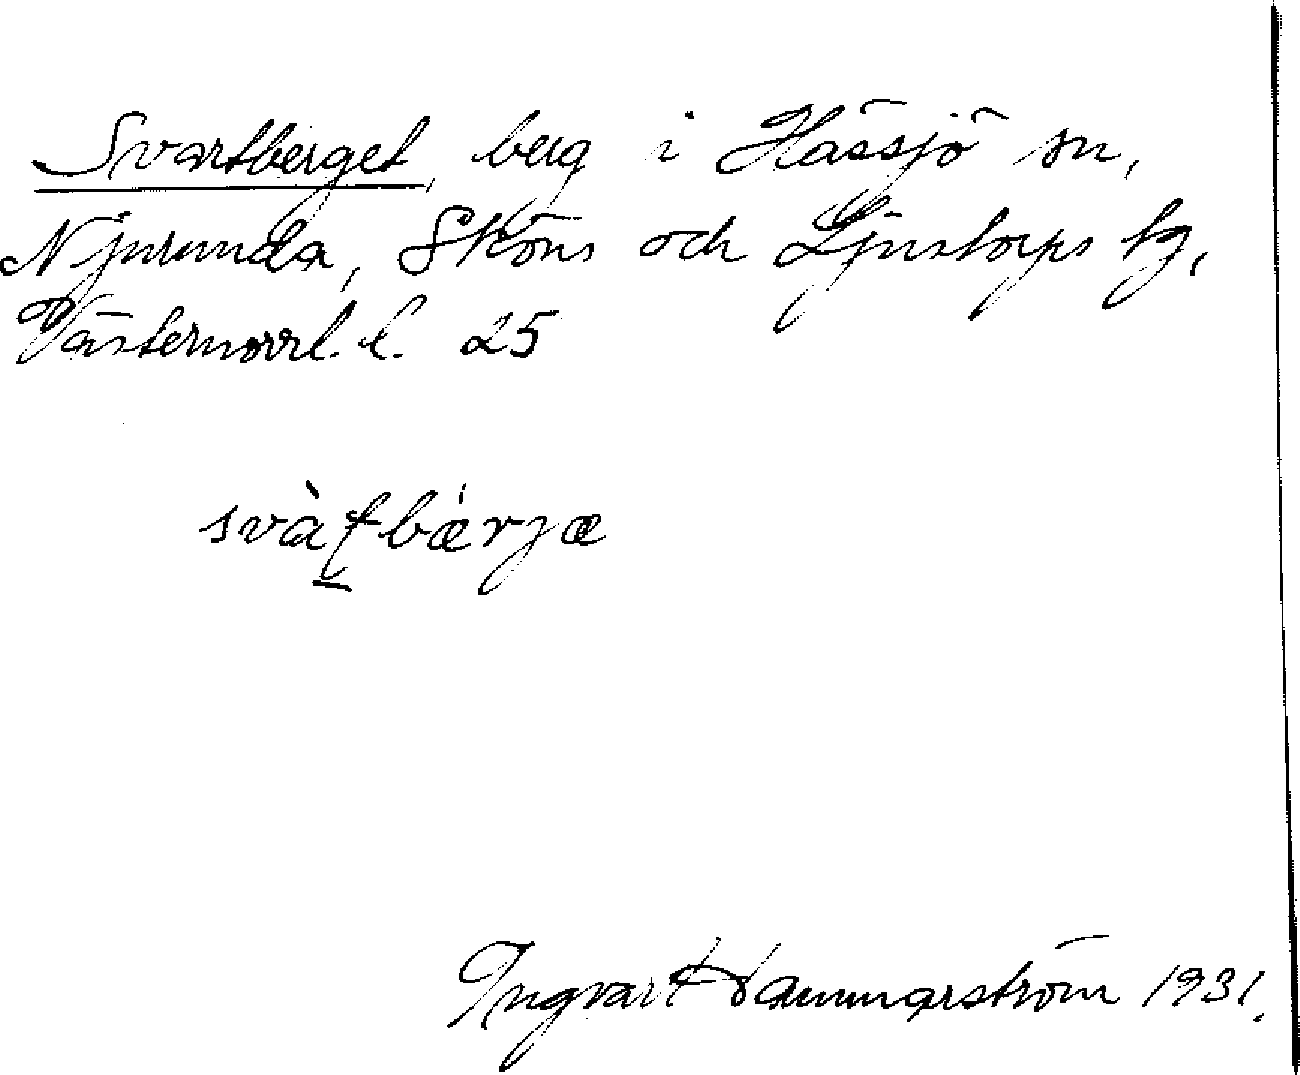 Svartberget, berg i Hässjö sn,
Njurunda, Sköns och Ljustorps tg,
Västernorrl. l. 25
svàʈbǽrjæ
Ingvar Hammarström 1931.